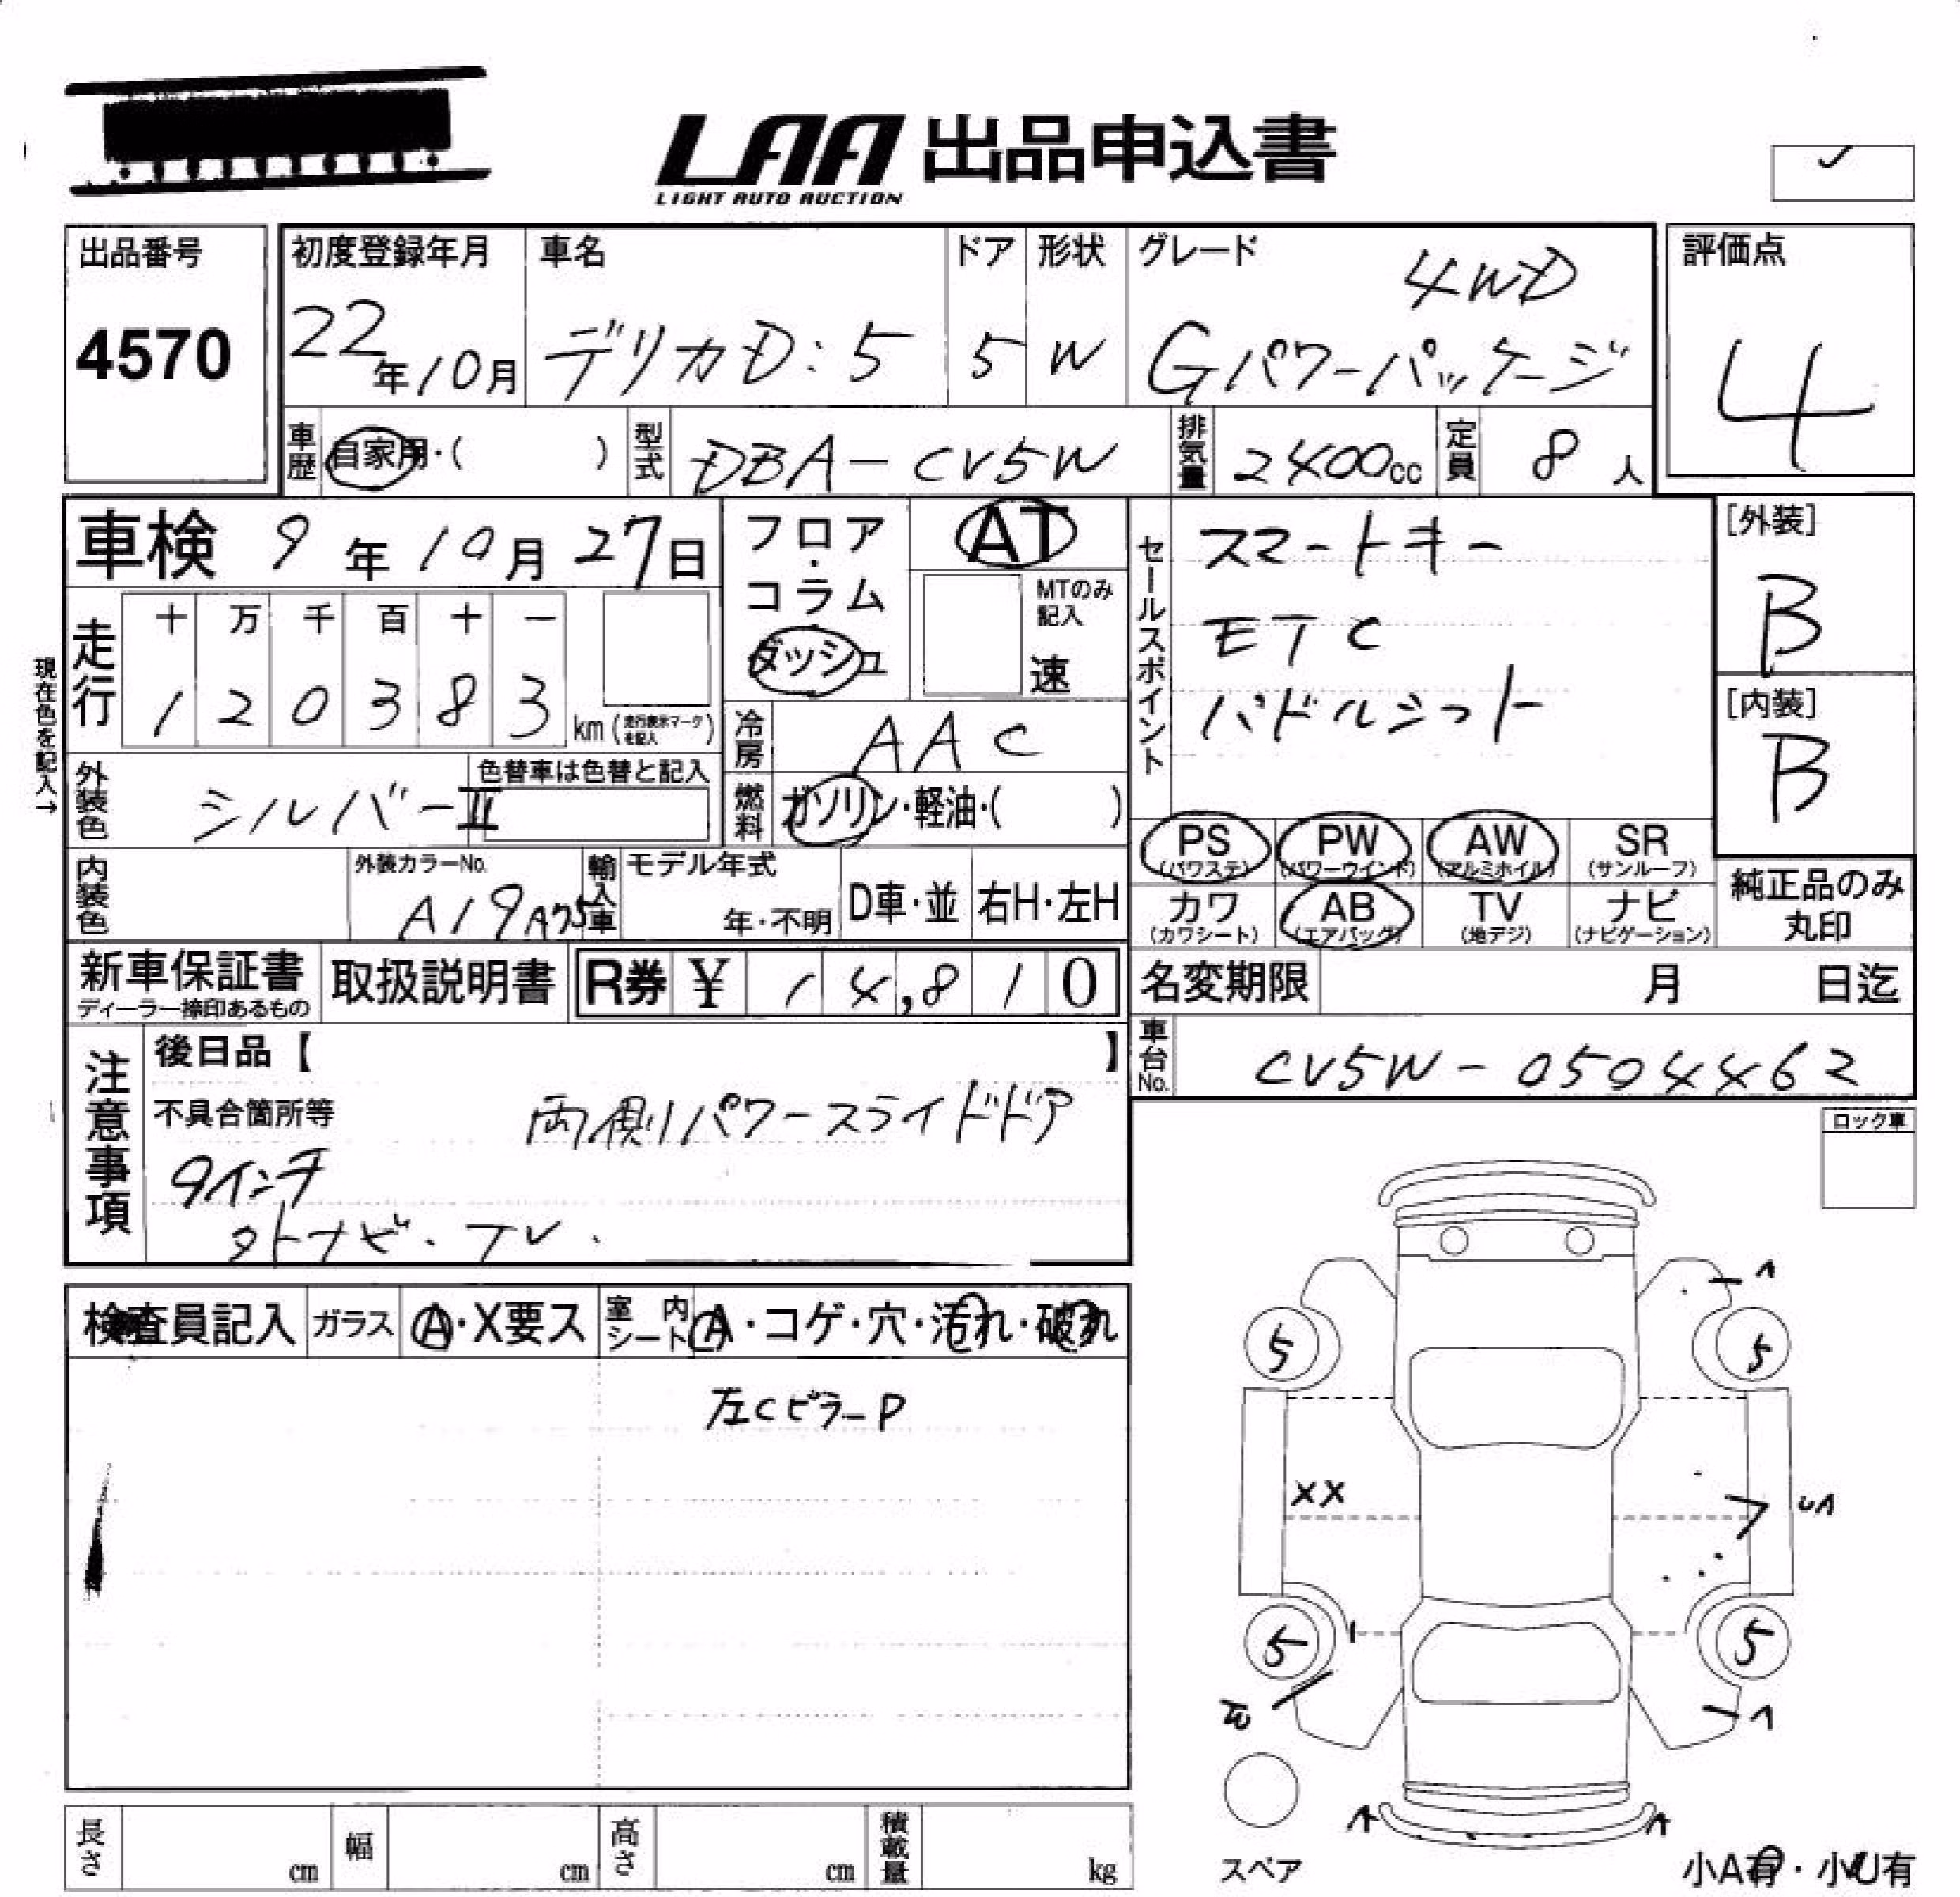 LAA 出品申込書
LIGHT AUTO AUCTION
出品番号
4570
初度登録年月
22年10月
車名
デリカD:5
ドア
5
形状
W
グレード
4WD
Gパワーパッケージ
評価点
4
車歴 自家用・( )
型式 DBA-CV5W
排気量 2400cc
定員 8人
車検 9年10月27日
フロア・コラム
ダッシュ
AT
MTのみ記入
速
セールスポイント
スマートキー
ETC
パドルシフト
[外装]
B
[内装]
B
現在色を記入→
走行
十 万 千 百 十 一
1 2 0 3 8 3 km (走行表示マークを記入)
冷房 AAC
外装色 シルバーⅡ
色替車は色替と記入
燃料 ガソリン・軽油・( )
PS (パワステ)
PW (パワーウインド)
AW (アルミホイル)
SR (サンルーフ)
カワ (カワシート)
AB (エアバッグ)
TV (地デジ)
ナビ (ナビゲーション)
純正品のみ丸印
内装色
外装カラーNo.
A19A75
輸入車
モデル年式
年・不明
D車・並
右H・左H
新車保証書
ディーラー捺印あるもの
取扱説明書
R券 ¥ 14,810
名変期限 月 日迄
車台No. CV5W-0504462
注意事項
後日品【 】
不具合箇所等
両側パワースライドドア
9インチ
外ナビ・TV.
ロック車
検査員記入
ガラス A・X要ス
室内シート A・コゲ・穴・汚れ・破れ
左CピラーP
5
5
XX
5
5
スペア
小A有・小U有
長さ cm
幅 cm
高さ cm
積載量 kg